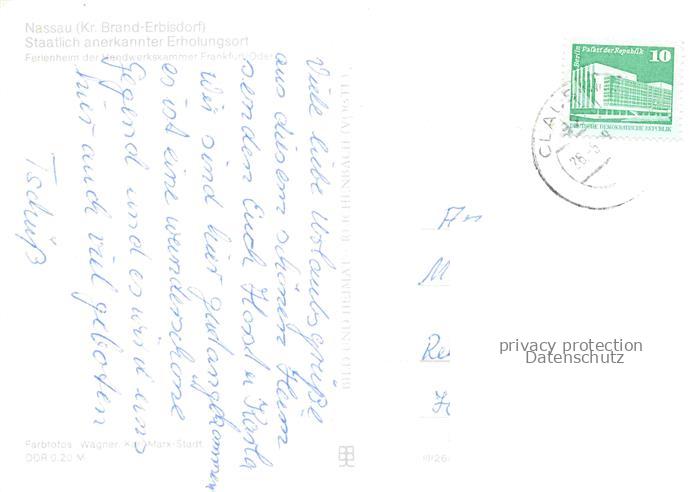 Nassau (Kr. Brand-Erbisdorf)
Staatlich anerkannter Erholungsort
Ferienheim der Handwerkskammer Frankfurt/Oder
Viele liebe Urlaubsgrüße
aus diesem schönen Heim
senden Euch Horst u. Karla
Wir sind hier gut angekommen
es ist eine wunderschöne
Gegend und es wird uns
hier auch viel geboten
Tschüß
BILD UND HEIMAT REICHENBACH (VOGTL)
Berlin Palast der Republik 10
DEUTSCHE DEMOKRATISCHE REPUBLIK
26.-6.
M
privacy protection
Datenschutz
Farbfotos: Wagner, Karl-Marx-Stadt
DDR 0,20 M